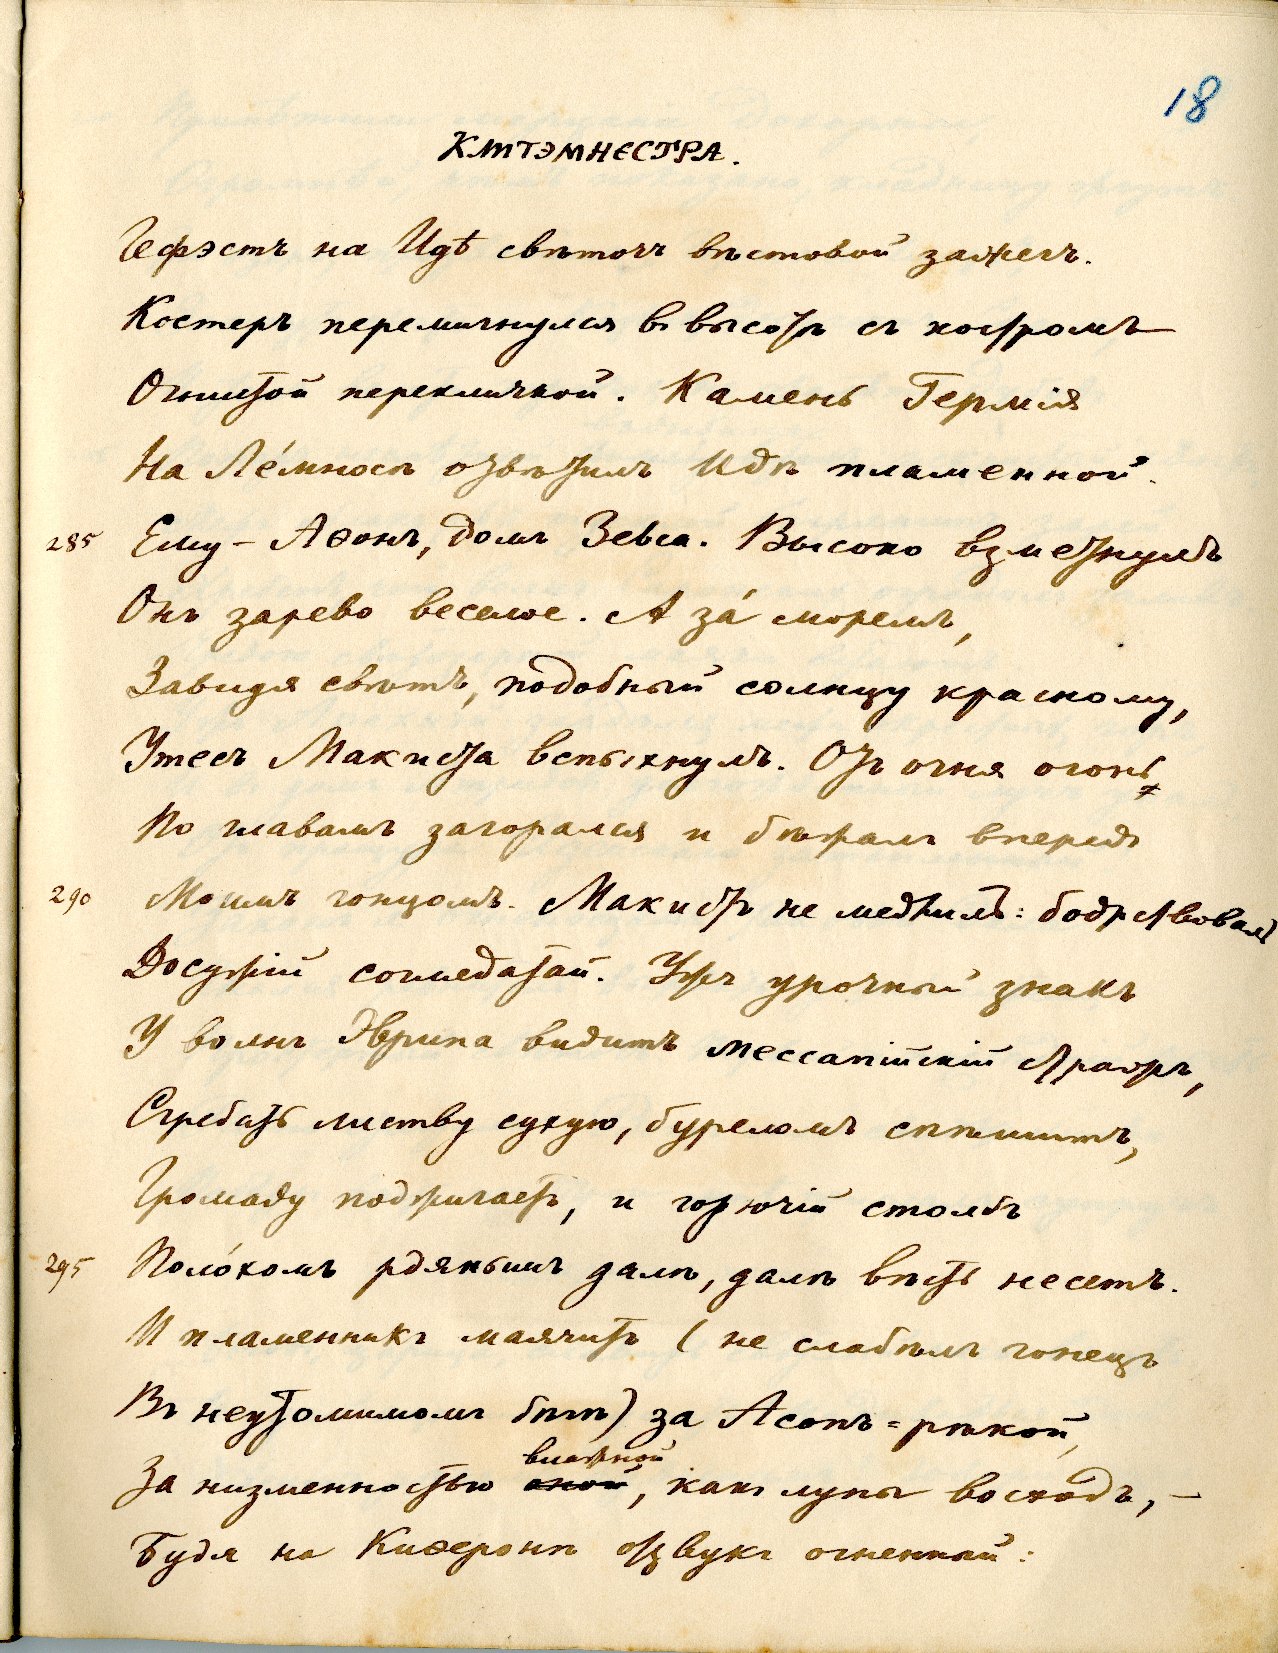 18
КЛИТЭМНЕСТРА.
Гефэстъ на Идѣ свѣточъ вѣстовой зажегъ.
Костеръ перемигнулся въ высотѣ съ костромъ
Огнистой перекличкой. Камень Гермія
На Ле́мносѣ отвѣтилъ Идѣ пламенной.
285 Ему – Аѳонъ, домъ Зевса. Высоко взметнулъ
Онъ зарево веселое. А за́ моремъ,
Завидя свѣтъ, подобный солнцу красному,
Утесъ Макиста вспыхнулъ. Отъ огня огонь
По главамъ загорался и бѣжалъ впередъ
290 Моимъ гонцомъ. Макистъ не медлилъ: бодрствовалъ
Досужій соглядатай. Ужъ урочный знакъ
У волнъ Эврипа видитъ мессапійскій стражъ,
Сгребать листву сухую, буреломъ спѣшитъ,
Громаду поджигаетъ, и горючій столбъ
295 Поло́хомъ рдянымъ далѣ, далѣ вѣсть несетъ.
И пламенникъ маячитъ (не слабѣлъ гонецъ
Въ неутомимомъ бѣгѣ) за Асопъ=рѣкой,
влажной
За низменностью оной, какъ луны восходъ, –
Будя на Киѳеронѣ отзвукъ огненный: